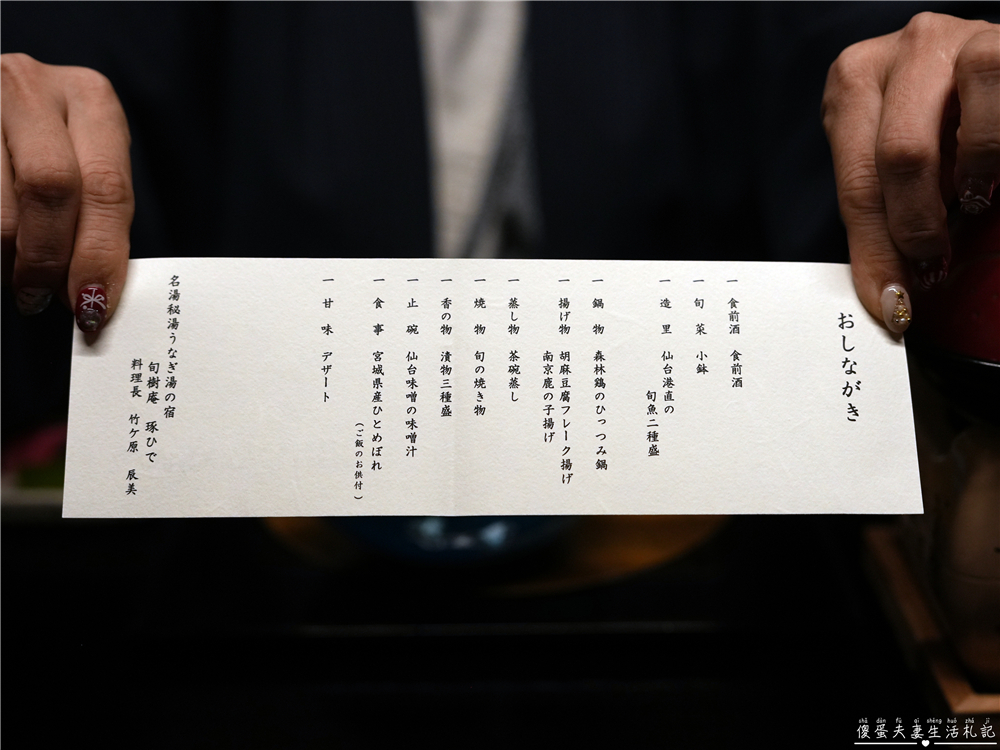 おしながき
一 食前酒 食前酒
一 旬 菜 小鉢
一 造 里 仙台港直の
旬魚二種盛
一 鍋 物 森林鶏のひっつみ鍋
一 揚げ物 胡麻豆腐フレーク揚げ
南京鹿の子揚げ
一 蒸し物 茶碗蒸し
一 焼 物 旬の焼き物
一 香の物 漬物三種盛
一 止 碗 仙台味噌の味噌汁
一 食 事 宮城県産ひとめぼれ
(ご飯のお供付)
一 甘 味 デザート
名湯秘湯うなぎ湯の宿
旬樹庵 琢ひで
料理長 竹ケ原 辰美
shǎ dàn fū qī shēng huó zhá jì
傻蛋夫妻生活札記